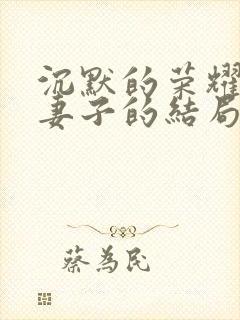 沉默的荣耀
妻子的結局
蔡為民